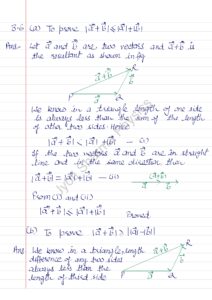 3.6 (a) To prove |a⃗+b⃗| ≤ |a⃗|+|b⃗|
Ans- Let a⃗ and b⃗ are two vectors and a⃗+b⃗ is
the resultant as shown in fig
R
a⃗+b⃗
b⃗
P
a⃗
Q
We know in a triangle length of one side
is always less than the sum of the length
of other two sides. Hence
|a⃗+b⃗| < |a⃗| + |b⃗| - (i)
If the two vectors a⃗ and b⃗ are in straight
line and in the same direction then
|a⃗+b⃗| = |a⃗|+|b⃗| - (ii)
(a⃗+b⃗)
a⃗ b⃗
From (i) and (ii)
|a⃗+b⃗| ≤ |a⃗|+|b⃗|
Proved
(b) To prove |a⃗+b⃗| ≥ ||a⃗|-|b⃗||
Ans- We know in a triangle, length
difference of any two sides
always less than the
length of third side
R
a⃗+b⃗
b⃗
P
a⃗
Q